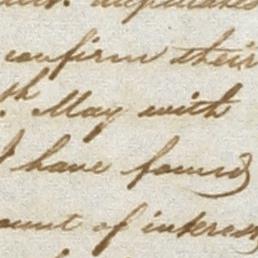 confirm their
th May with
I have found
ount of interest